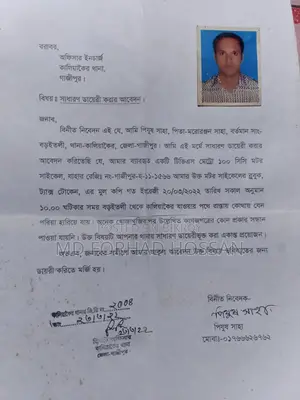 বরাবর,
অফিসার ইনচার্জ
কালিয়াকৈর থানা,
গাজীপুর।
বিষয়ঃ সাধারণ ডায়েরী করার আবেদন।
জনাব,
বিনীত নিবেদন এই যে, আমি পিযুষ সাহা, পিতা-মনোরঞ্জন সাহা, বর্তমান সাং-
বড়ইতলী, থানা-কালিয়াকৈর, জেলা-গাজীপুর। আমি এই মর্মে সাধারণ ডায়েরী করার
আবেদন করিতেছি যে, আমার ব্যবহৃত একটি টিভিএস মেট্রো ১০০ সিসি মটর
সাইকেল, যাহার রেজিঃ নং-গাজীপুর-হ-১১-১৫৬৬ আমার উক্ত মটর সাইকেলের ব্লুবুক,
ট্যাক্স টোকেন, এর মুল কপি গত ইংরেজী ২০/০৩/২০২২ তারিখ সকাল অনুমান
১০.০০ ঘটিকার সময় বড়ইতলী থেকে কালিয়াকৈর যাওয়ার পথে রাস্তায় কোথায় যেন
পরিয়া হারিয়ে যায়। অনেক খোজাখুজির উল্লেখিত কাগজপত্রের কোন প্রকার সন্ধান
পাওয়া যায়নি। উক্ত বিষয়টি আপনার থানায় সাধারণ ডায়েরীভুক্ত করা একান্ত প্রয়োজন।
অতএব, জনাবের সমীপে আমার আকুল আবেদন উক্ত বিষয়ে ভবিষ্যতের জন্য
ডায়রী করিতে মর্জি হয়।
MD FORHAD HOSSAN
২০০৪
বিনীত নিবেদক-
পিযুষ সাহা
পিযুষ সাহা
মোবাঃ-০১৭৬৬৬২৬৭৬২
কালিয়াকৈর থানা
জেলা-গাজীপুর।